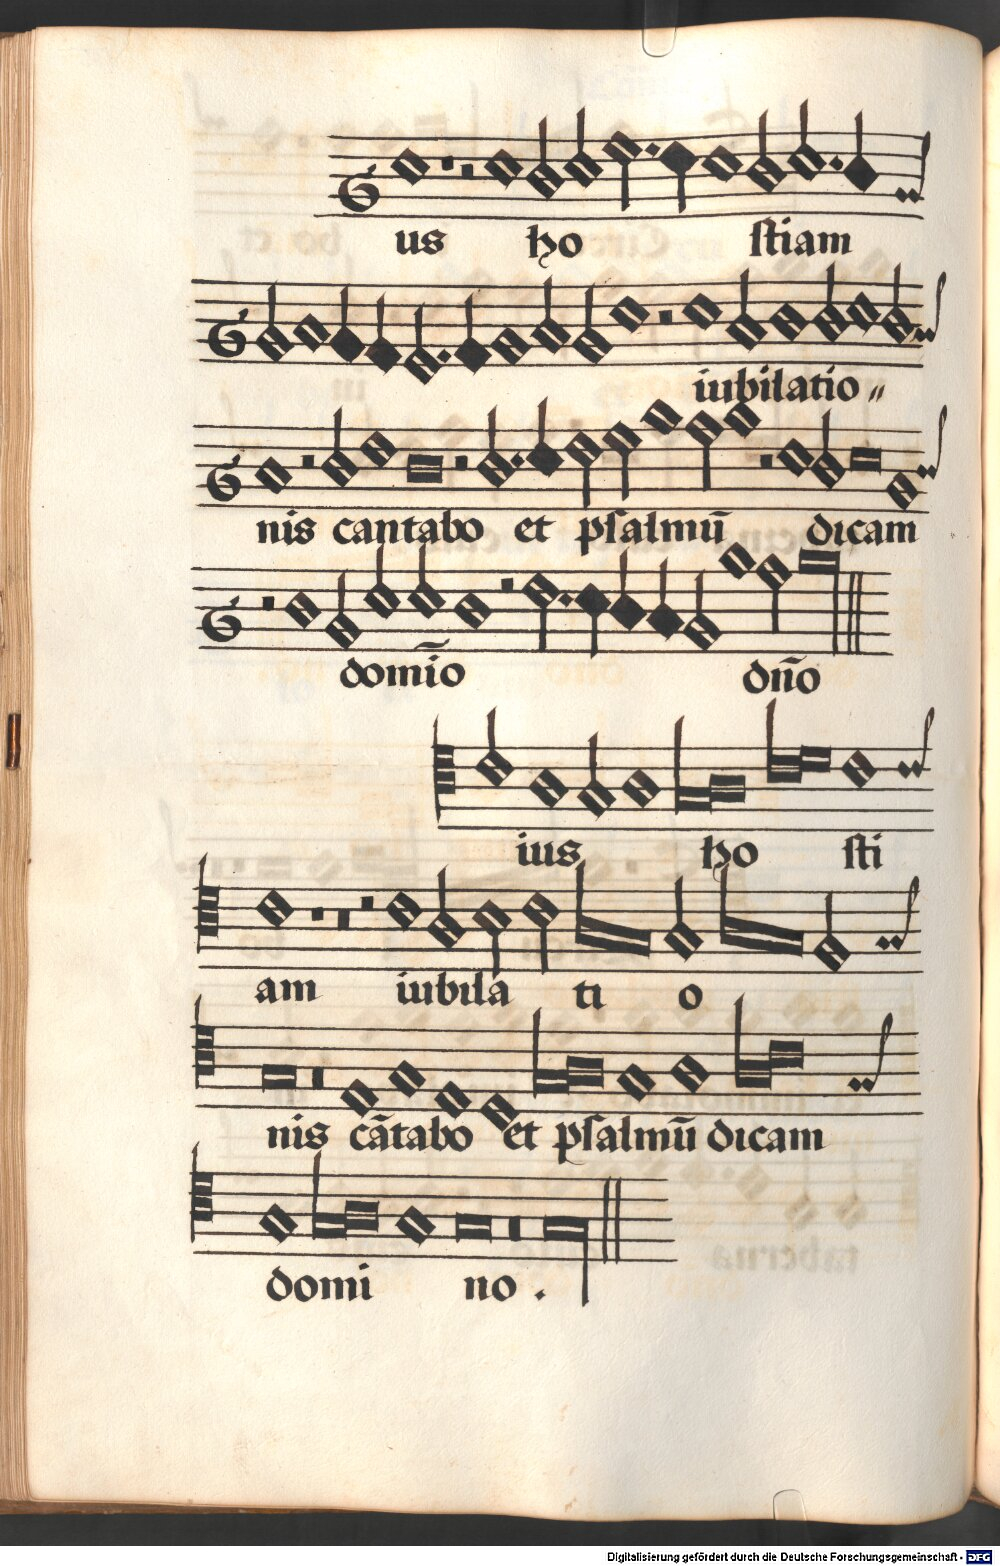 us ho stiam
iubilatio„
nis cantabo et psalmū dicam
domīo dn̄o
ius ho sti
am iubila ti o
nis cātabo et psalmū dicam
domi no .
Digitalisierung gefördert durch die Deutsche Forschungsgemeinschaft - DFG